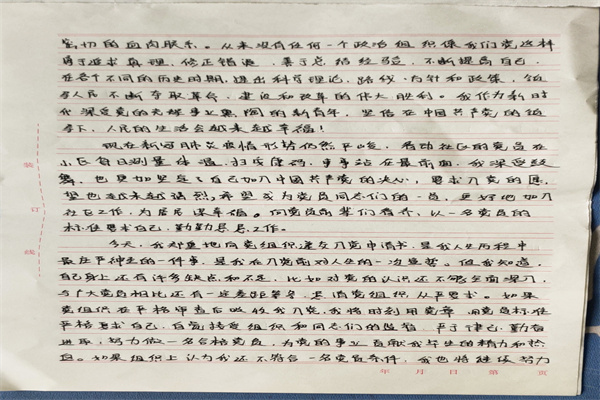 密切的血肉联系。从来没有任何一个政治组织像我们党这样
勇于追求真理、修正错误，善于总结经验，不断提高自己，
在各个不同的历史时期，提出科学理论、路线、方针和政策，领
导人民不断夺取革命、建设和改革的伟大胜利。我作为新时
代深受党的光辉事业熏陶的新青年，坚信在中国共产党的领
导下，人民的生活会越来越幸福！
现在新冠肺炎疫情形势仍然严峻，看动社区的党员在
小区每日测量体温、扫健康码，事事站在最前面，我深受鼓
舞，也更加坚定了自己加入中国共产党的决心，要求入党的愿
望也越来越强烈，希望成为党员同志们的一员，更好地加入
社区工作，为居民谋幸福。向党员前辈们看齐，以一名党员的
标准要求自己，勤勤恳恳工作。
今天，我郑重地向党组织递交入党申请书，是我人生历程中
最庄严神圣的一件事，是我在入党前对人生的一次宣誓。但我知道，
自己身上还有许多缺点和不足，比如对党的认识还不够全面深入，
与广大党员相比还有一定差距等等，恳请党组织从严要求。如果
党组织在严格审查后吸收我入党，我将时刻用党章、用党员标准
严格要求自己，自觉接受组织和同志们的监督，严于律己、勤奋
进取，努力做一名合格党员，为党的事业贡献我毕生的精力和热
血。如果组织上认为我还不符合一名党员条件，我也将继续努力
装
订
线
年 月 日 第 页